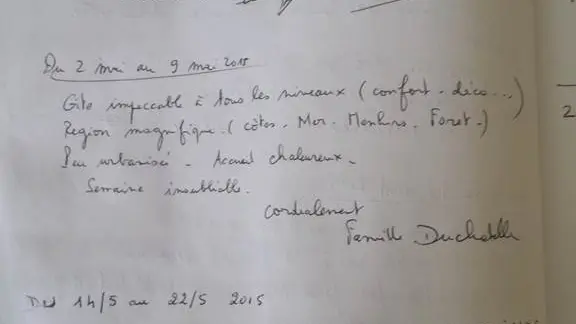 Du 2 mai au 9 mai 2015
Gite impeccable à tous les niveaux (confort - déco...)
Région magnifique. (côtes - Mer - Menhirs - Foret -)
Peu urbanisé - Accueil chaleureux -
Semaine inoubliable.
cordialement
Famille
Du 14/5 au 22/5 2015
2